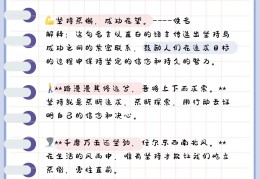 💪坚持不懈，成功在望。----佚名
解释：这句名言以直白的语言传达出坚持与
成功之间的紧密联系，鼓励人们在追求目标
的过程中保持坚定的信念和持久的努力。
**路漫漫其修远兮，吾将上下而求索。**
坚持就是不断追求，不断探索，用行动去证
明自己的信念和决心。
**千磨万击还坚劲，任尔东西南北风。**
在生活的风雨中，唯有坚持才能让我们屹立
不倒，勇往直前。